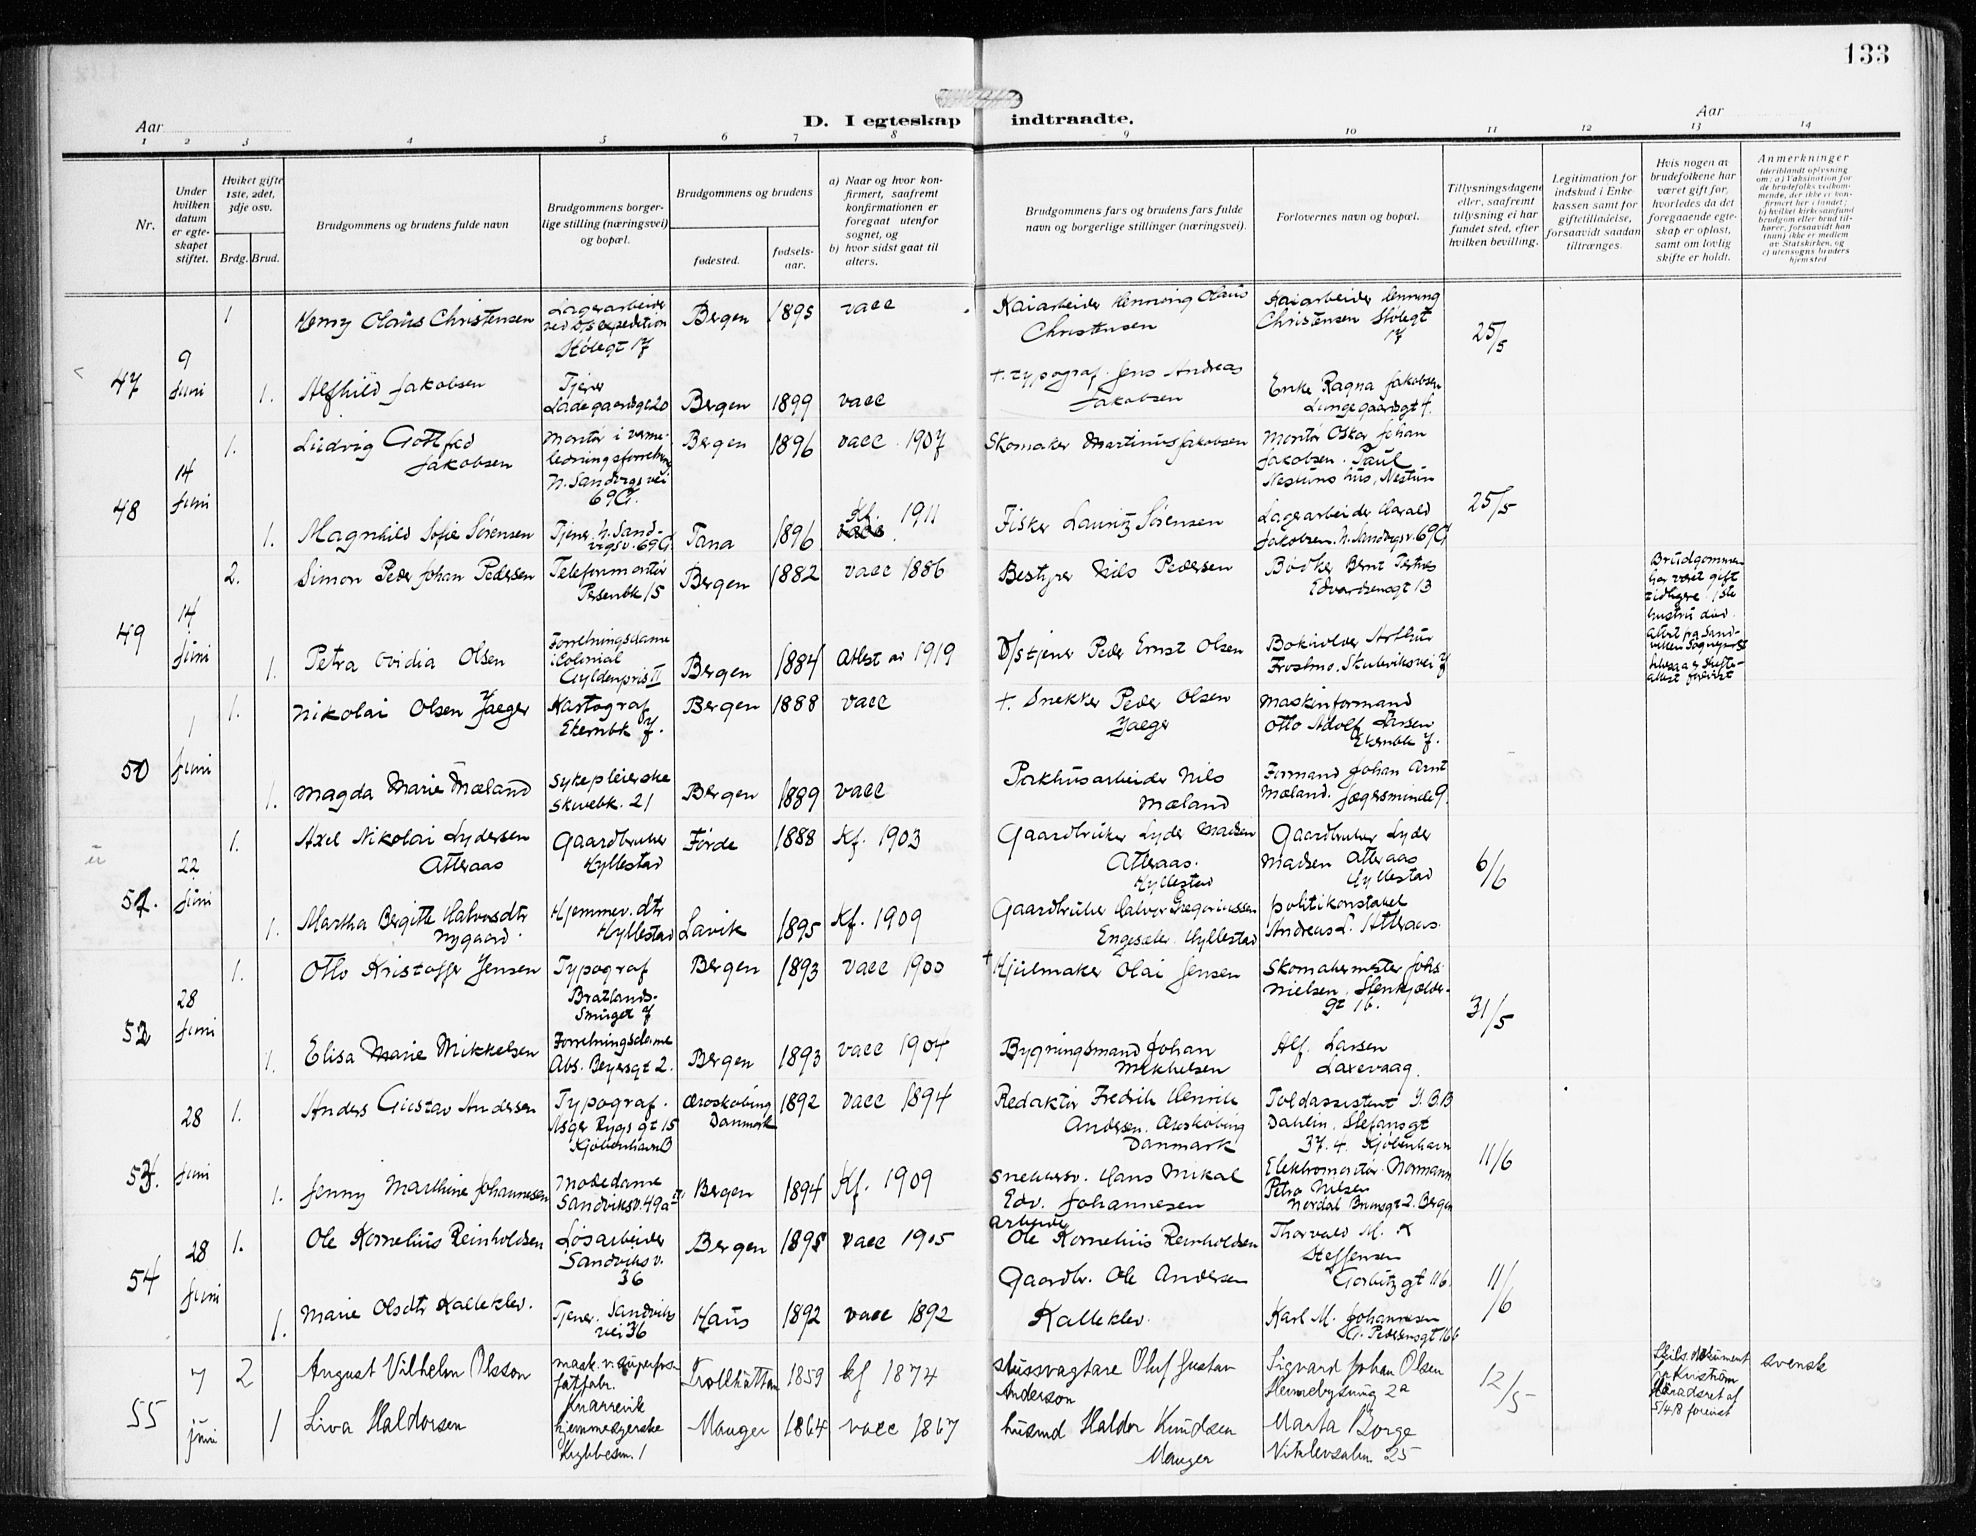 133
D. I egteskap indtraadte.
Aar
Aar
1 2 3 4 5 6 7 8 9 10 11 12 13 14
Nr.
Under hvilken datum er egteskapet stiftet.
Hvilket gifte 1ste, 2det, 3dje osv.
Brdg. Brud.
Brudgommens og brudens fulde navn
Brudgommens borgerlige stilling (næringsvei) og bopæl.
Brudgommens og brudens
fødested.
fødselsaar.
a) Naar og hvor konfirmert, saafremt konfirmationen er foregaat utenfor sognet, og
b) hvor sidst gaat til alters.
Brudgommens fars og brudens fars fulde navn og borgerlige stillinger (næringsvei).
Forlovernes navn og bopæl.
Tillysningsdagene eller, saafremt tillysning ei har fundet sted, efter hvilken bevilling.
Legitimation for indskud i Enkekassen samt for giftetilladelse, forsaavidt saadan tiltrænges.
Hvis nogen av brudefolkene har været gift før, hvorledes da det foregaaende egteskap er opløst, samt om lovlig skifte er holdt.
Anmerkninger
47
9 Juni
1
Henry Olaus Christensen
Lagerarbeider ved D/S expedition Stølegt 17
Bergen
1895
vacc
Kaiarbeider Henning Olaus Christensen
Kaiarbeider Henning Christensen Stølegt 17
25/5
1.
Alfhild Jakobsen
Tjener Ladegaardsgt 20
Bergen
1899
vacc
+. typograf. Jens Andreas Jakobsen
Enke Ragna Jakobsen Lungegaardsgt 4.
48
14 Juni
1.
Ludvig Gottfred Jakobsen
Montør i varmeledningsforretning N. Sandvigsvei 69 G.
Bergen
1896
vacc. 1907
Skomaker Martinus Jakobsen
Montør Oskar Johan Jakobsen. Paul Nestuns hus, Nestun
25/5
1.
Magnhild Sofie Sørensen
Tjener N. Sandvigsv. 69 G.
Tana
1896
Kf. 1911
Fisker Lauritz Sørensen
Lagerarbeider Harald Jakobsen. N. Sandvigsv. 69 G
49
14 Juni
2.
Simon Peder Johan Pedersen
Telefonmontør Persenbk 15
Bergen
1882
vacc 1886
Bestyrer Nils Pedersen
Bødker Bernt Edvardsensgt 13
Brudgommen har været gift tidligere. 1ste hustru død.
1.
Petra Ovidia Olsen
Forretningsdame i Colonial Gyldenpris II
Bergen
1884
Attest av 1919
D/S tjener Peder Ernst Olsen
Bokholder Arthur Skuteviksvei 7
50
1 Juni
1.
Nikolai Olsen Jæger
Kartograf Ekernbk 7.
Bergen
1888
vacc
+. Snekker Peder Olsen Jæger
Maskinformand Otto Adolf Larsen Ekernbk 7.
1.
Magda Marie Mæland
Sykepleierske Skivebk. 21
Bergen
1889
vacc
Pakhusarbeider Nils Mæland
Formand Johan Arnt Mæland. Jægersminde 9.
51.
22 Juni
1.
Axel Nikolai Lydersen Atteraas
Gaardbruker Hyllestad
Førde
1888
Kf. 1903
Gaardbruker Lyder Madsen Atteraas. Hyllestad
Gaardbruker Lyder Madsen Atteraas Hyllestad
6/6
1.
Martha Bergitte Halvorsdtr Nygaard.
Hjemmev. dtr Hyllestad
Lavik
1895
Kf. 1909
Gaardbruker Halvor Gregoriussen Engesæter. Hyllestad
politikonstabel Andreas L. Atteraas.
52
28 Juni
1.
Otto Kristoffer Jensen
Typograf Bratlandssmuget 7
Bergen
1893
vacc 1900
+ Hjulmaker Olai Jensen
Skomakermester Johs. Nielsen. Stenkjeldergt 16.
31/5
1.
Elisa Marie Mikkelsen
Forretningsdame Abs. Beyersgt 2.
Bergen
1893
vacc 1904
Bygningsmand Johan Mikkelsen
Alf. Larsen Laxevaag.
53.
28 Juni
1.
Anders Gustav Andersen
Typograf. Asger Rygs gt 15 Kjøbenhavn B
Ærøskøbing Danmark
1892
vacc 1894
Redaktør Fredrik Henrik Andersen. Ærøskøbing Danmark
Toldassistent J. B. B Dahlin, Stefansgt 37. 4. Kjøbenhavn
11/6
1.
Jenny Marthine Johannesen
Modedame Sandviksv. 49a
Bergen
1894
Kf. 1909
Snekkersv. Hans Mikal Edv. Johannesen
Elektromontør. Normann Petra Nilsen Nordal Brunsgt 2. Bergen
54
28 Juni
1.
Ole Kornelius Reinholdsen
Løsarbeider Sandviksv. 36
Bergen
1895
vacc 1905
arbeider Ole Kornelius Reinholdsen
Thorvald M. K Steffensen Gorbitzgt 11 b.
11/6
1.
Marie Olsdtr Kalleklev.
Tjener. Sandviksvei 36
Haus
1892
vacc 1892
Gaardbr. Ole Andersen Kalleklev.
Karl M. Johannesen
55
7 juni
2
August Vilhelm Olsson
mask. v. superfosfatfabr. Knarrevik
Trollhättan
1859
kf 1874
slussvagtare Oluf Gustav Anderson
Sigvard Johan Olsen Hennebysmug 2a
12/5
svensk
1
Liva Haldorsen
hjemmesyerske
Manger
1864
vacc 1867
husmd Haldor Knudsen Manger
Marta Borge 25